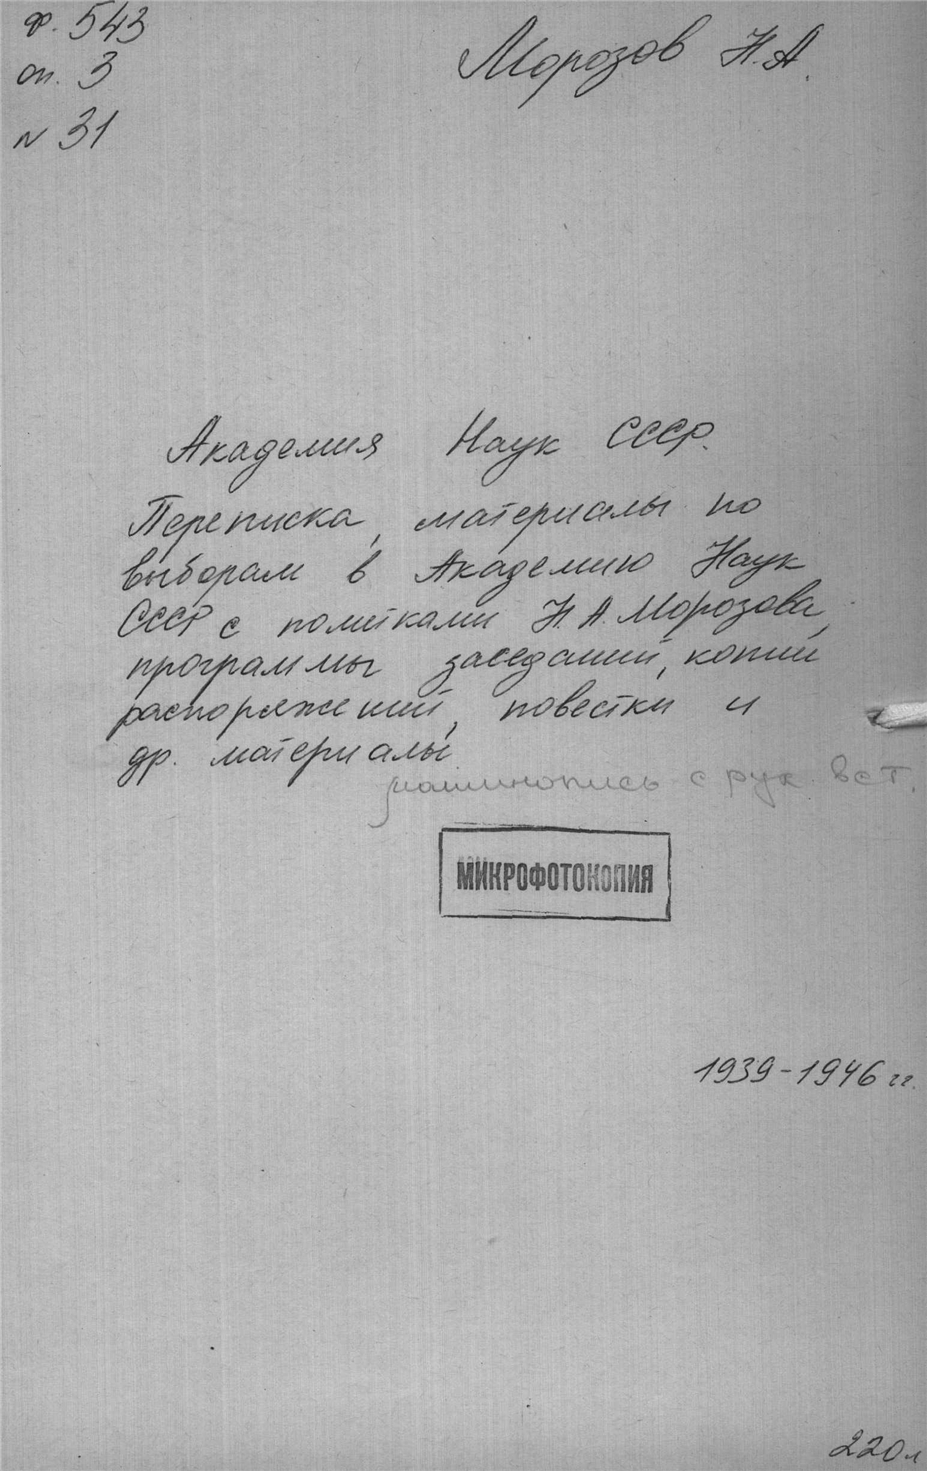 ф. 543
оп. 3
N 31
Морозов Н.А.
Академия Наук СССР.
Переписка, материалы по
выборам в Академию Наук
СССР с пометками Н.А. Морозова,
программы заседаний, копии
распоряжений, повестки и
др. материалы
машинопись с рук вст.
МИКРОФОТОКОПИЯ
1939-1946 гг.
220 л